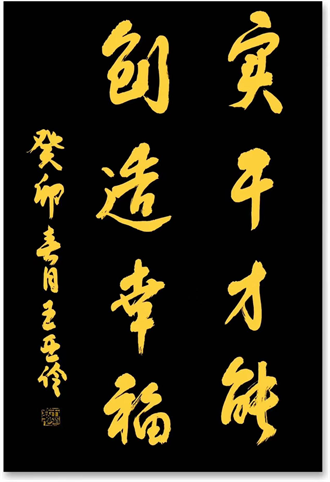 实干才能
创造幸福
癸卯春月王亚伶